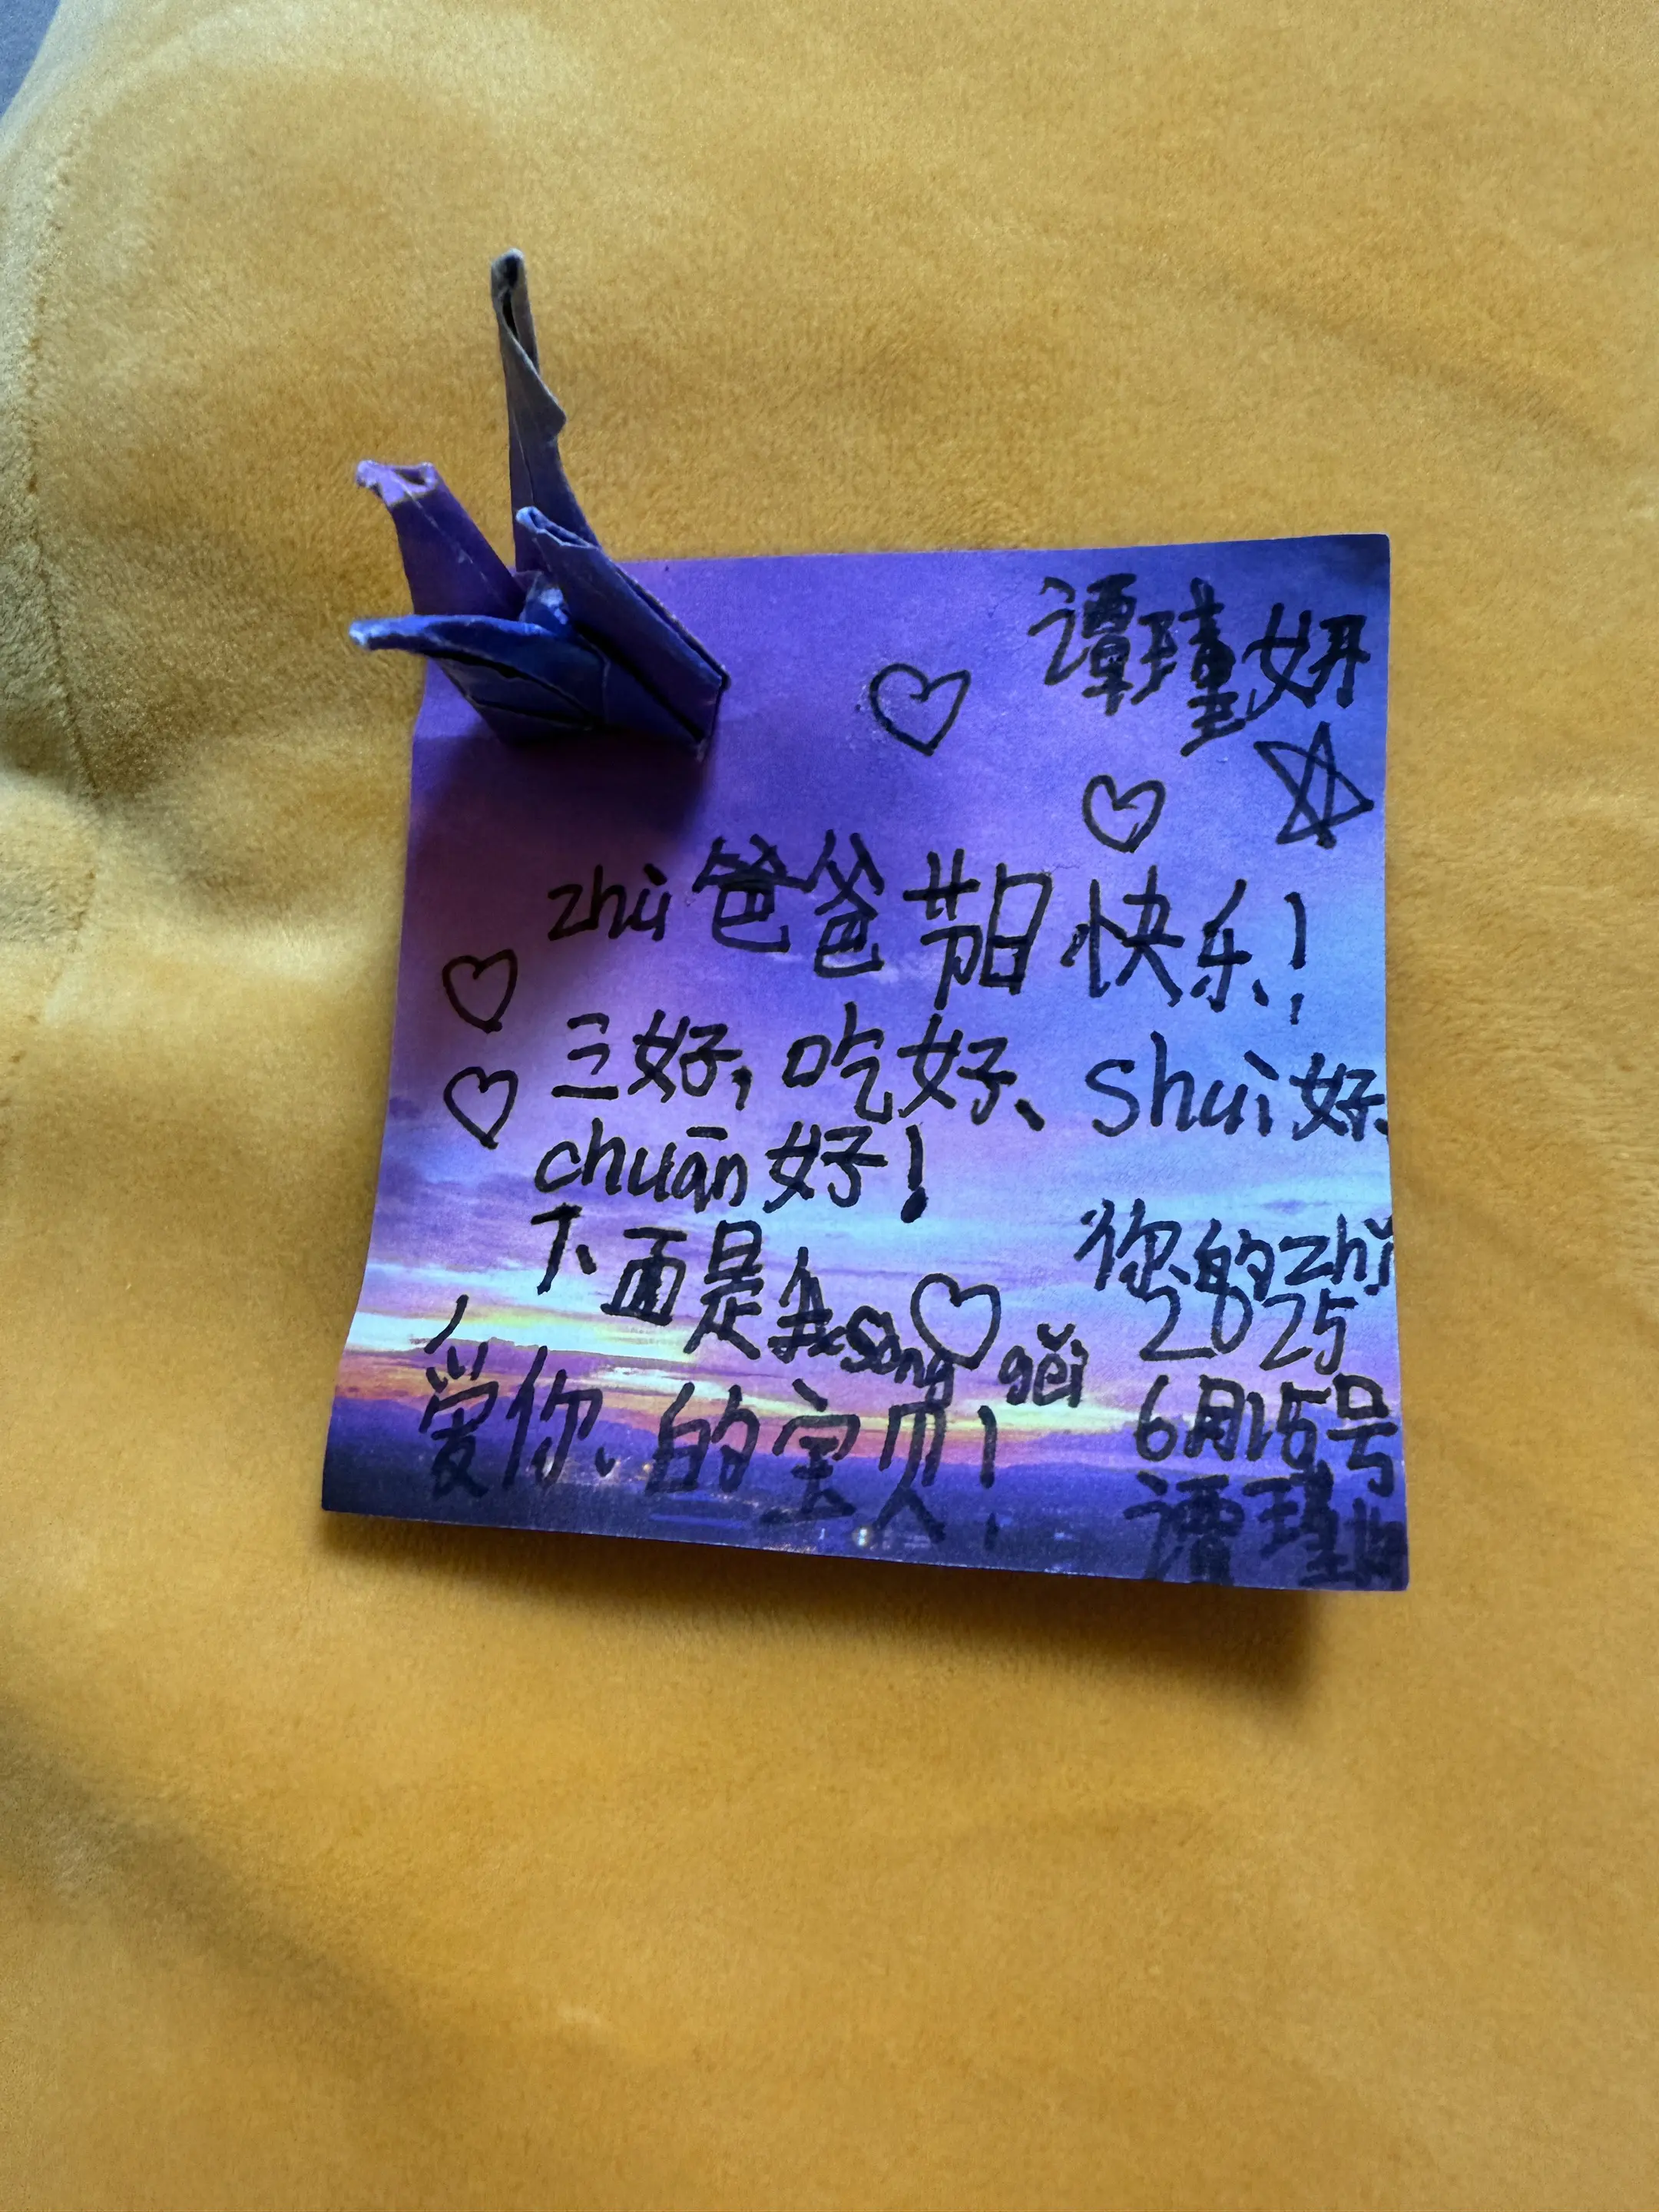 谭瑾妍
zhù爸爸节日快乐!
三好,吃好、shuì好、
chuān好!
下面是我sòng gěi
爱你的宝贝!
你的zhǐ
2025
6月15号
谭瑾妍